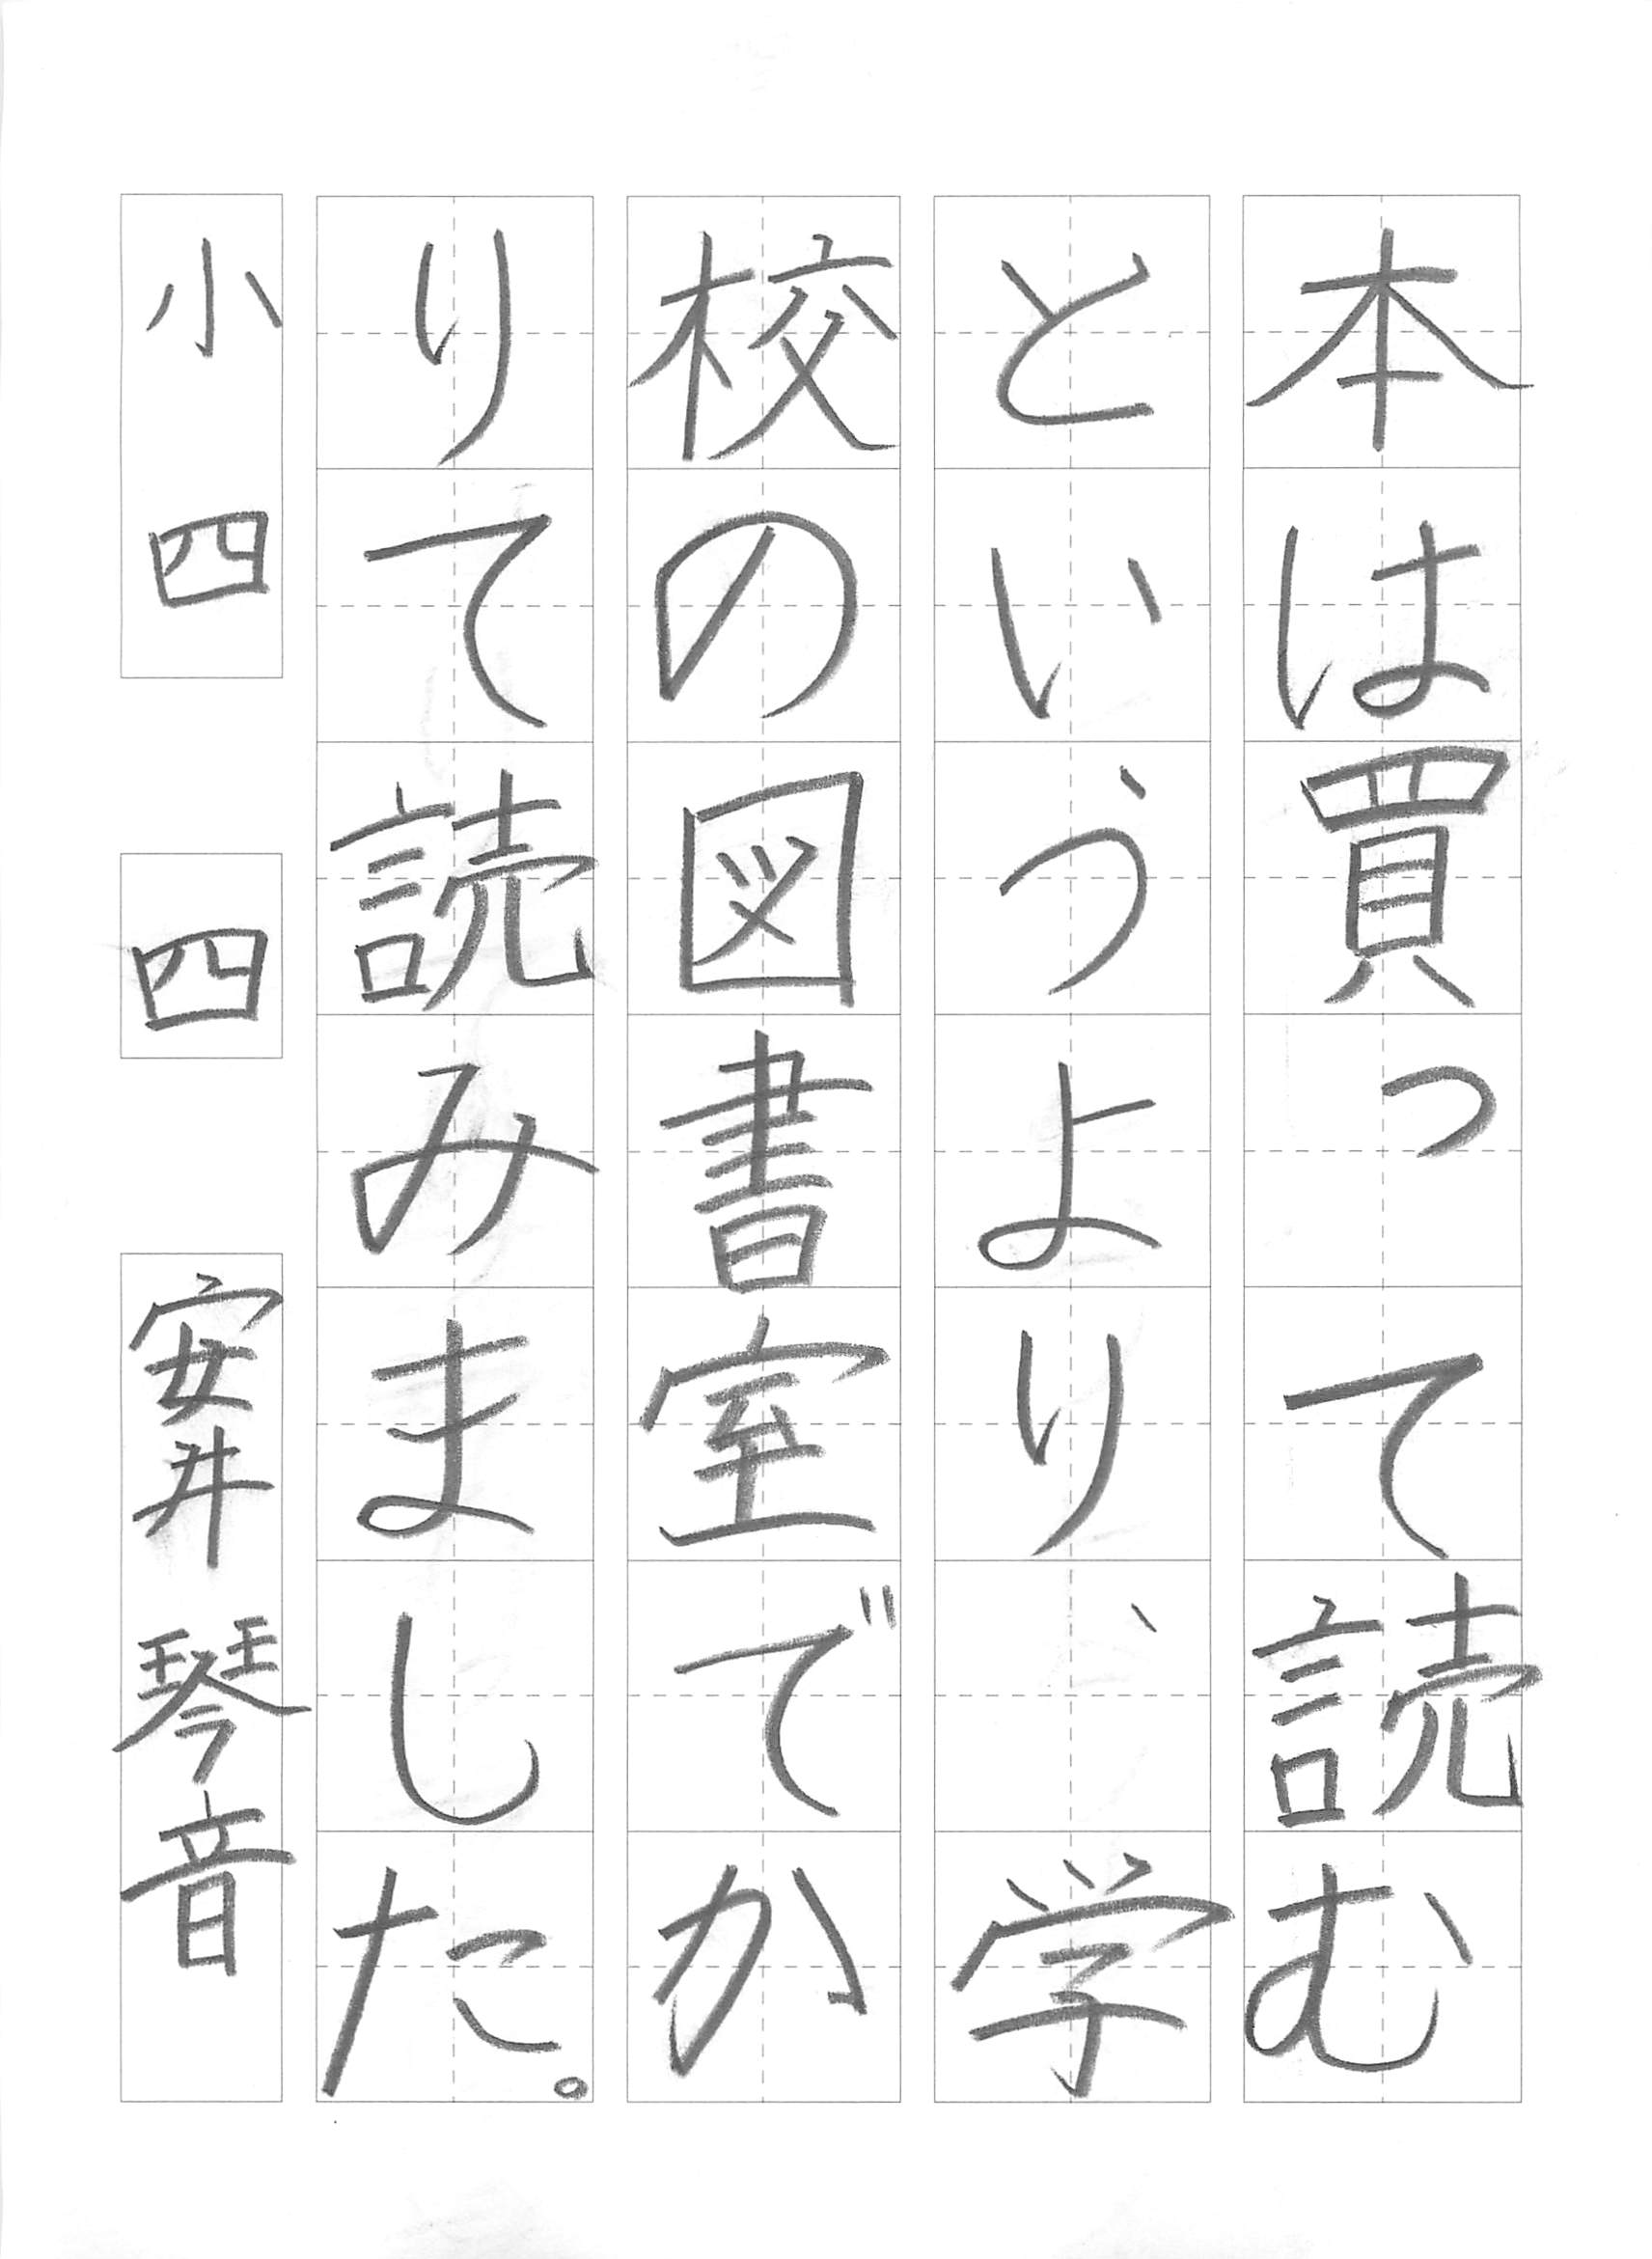 本は買って読む
というより、学
校の図書室でか
りて読みました。
小四 四 安井琴音